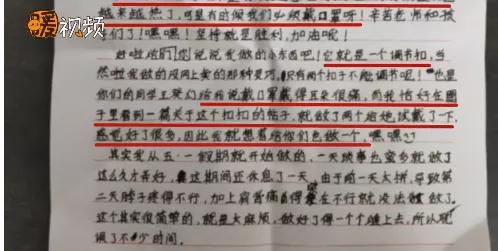 暖视频
越来越热了,可是有时候我们必须戴口罩听!辛苦老师和孩
们了!嘿嘿!坚持就是胜利,加油呢!
好啦给们说说我做的小东西吧!它就是一个调节扣,当
然啦我做的没网上卖的那种灵巧,只有两个扣子不能调节呢!也是
你们的同学王梦幻给我说戴口罩戴得耳朵很痛,而我恰好在圈
子里看到一篇关于这个扣扣的帖子,就做了两个给她试戴了一下,
感觉好了很多,因此我就想着给你们也做一个,嘿嘿
其实我从五·一假期就开始做的,一天琐事也蛮多就做了
这么久才弄好,这期间还休息了一天,由于前一天太拼,导致第
二天脖子疼得不行,加上肩背痛得坐在不行就没法做了。
这个其实很简单的,就是太麻烦,做好了得一个个缝上去,所以耽
误了不少时间。